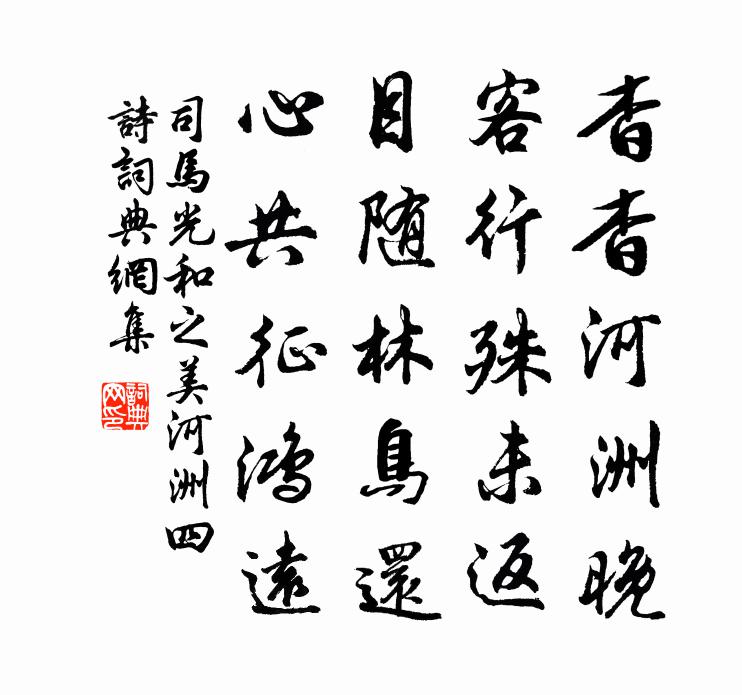 杳杳河洲晚
客行殊未返
目随林鳥還
心共征鴻遠
司馬光和之美河洲四
詩詞典網集
詞典
网印